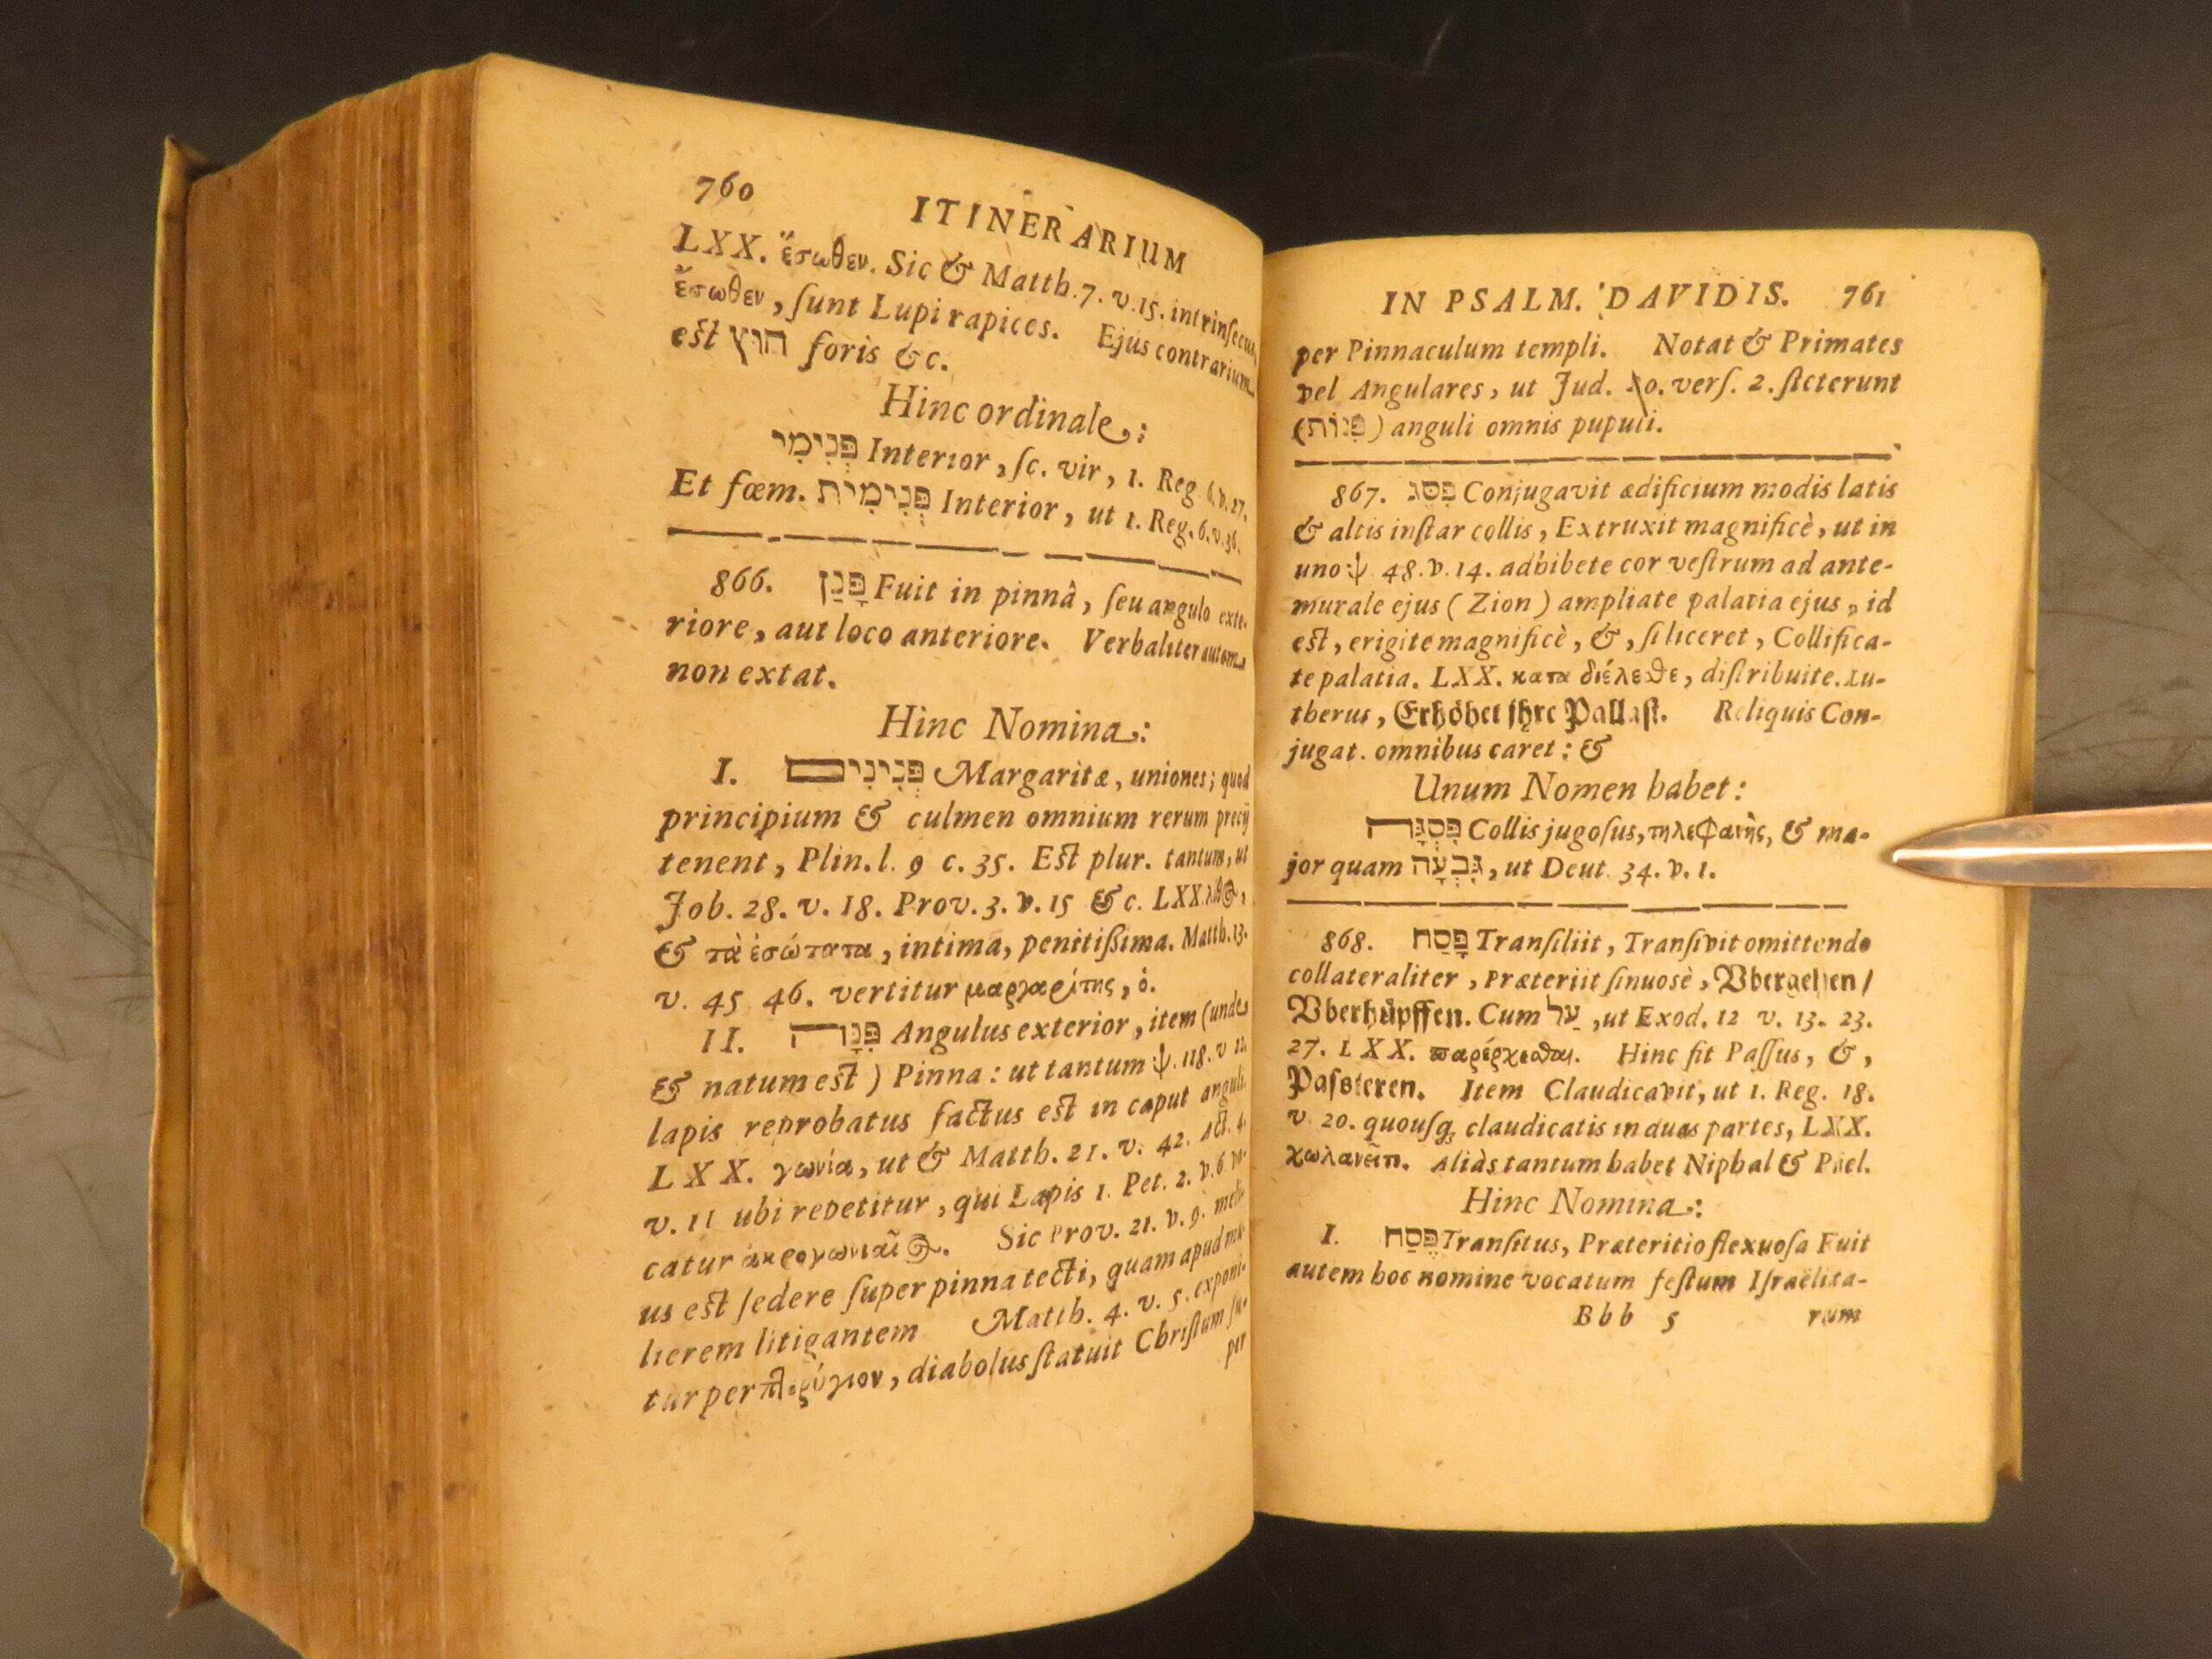 760 ITINERARIUM
LXX. ἔσωθεν. Sic & Matth. 7. v. 15. intrinſecus,
ἔσωθεν, ſunt Lupi rapices. Ejus contrarium
est חוץ foris &c.
Hinc ordinale:
פְּנִימִי Interior, ſc. vir, 1. Reg. 6. v. 27.
Et fœm. פְּנִימִית Interior, ut 1. Reg. 6. v. 36.
866. פָּנַן Fuit in pinnâ, ſeu angulo exte-
riore, aut loco anteriore. Verbaliter autem
non extat.
Hinc Nomina:
I. פְּנִינִים Margaritæ, uniones; quod
principium & culmen omnium rerum precij
tenent, Plin. l. 9 c. 35. Est plur. tantum, ut
Job. 28. v. 18. Prov. 3. v. 15 &c. LXX.
& τὰ ἐσώτατα, intima, penitißima. Matth. 13.
v. 45 46. vertitur μαργαρίτης, ὁ.
II. פִּנָּה Angulus exterior, item (unde
& natum est) Pinna: ut tantum ψ. 118. v
lapis reprobatus factus est in caput anguli.
LXX. γωνία, ut & Matth. 21. v. 42. Act. 4.
v. 11 ubi repetitur, qui Lapis 1. Pet. 2. v. 6. vo-
catur Sic Prov. 21. v. 9. meli-
us est ſedere ſuper pinna tecti, quam apud mu-
lierem litigantem Matth. 4. v. 5. exponi-
tur per πτερύγιον, diabolus ſtatuit Chriſtum ſu-
per
IN PSALM. DAVIDIS. 761
per Pinnaculum templi. Notat & Primates
vel Angulares, ut Jud. 20. verſ. 2. ſteterunt
(פִּנּוֹת) anguli omnis pupuli.
867. פִּסֵּג Conjugavit ædificium modis latis
& altis inſtar collis, Extruxit magnificè, ut in
uno ψ 48. v. 14. adhibete cor veſtrum ad ante-
murale ejus (Zion) ampliate palatia ejus, id
est, erigite magnificè, &, ſi liceret, Collifica-
te palatia. LXX. κατα διέλεσθε, diſtribuite. Lu-
therus, Erhöhet ihre Pallaſt. Reliquis Con-
jugat. omnibus caret: &
Unum Nomen habet:
פִּסְגָּה Collis jugoſus, τηλεφανὴς, & ma-
jor quam גִּבְעָה, ut Deut. 34. v. 1.
868. פָּסַח Tranſiliit, Tranſivit omittendo
collateraliter, Præteriit ſinuosè, Vbergehen/
Vberhüpffen. Cum עַל, ut Exod. 12 v. 13. 23.
27. LXX. παρέρχεσθαι. Hinc fit Paſſus, &,
Paſsieren. Item Claudicavit, ut 1. Reg. 18.
v. 20. quouſq; claudicatis in duas partes, LXX.
χωλανεῖτε. Aliàs tantum habet Niphal & Piel.
Hinc Nomina:
I. פֶּסַח Tranſitus, Præteritio flexuoſa Fuit
autem hoc nomine vocatum feſtum Iſraëlita-
Bbb 5 rum